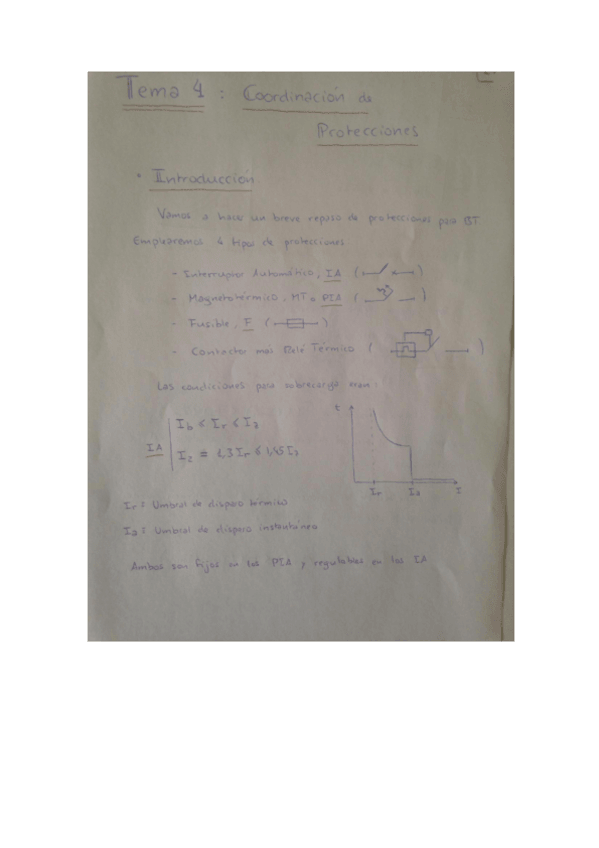 Tema 4 : Coordinación de
Protecciones
• Introducción
Vamos a hacer un breve repaso de protecciones para BT
Emplearemos 4 tipos de protecciones
- Interruptor Automático, IA ( )
- Magnetotérmico, MT o PIA ( )
- Fusible, F ( )
- Contactor más Relé Térmico ( )
Las condiciones para sobrecarga eran:
Ib ≤ Ir ≤ Iz
IA
I2 = 1,3 Ir ≤ 1,45 Iz
t
Ir Ia I
Ir = Umbral de disparo térmico
Ia = Umbral de disparo instantáneo
Ambos son fijos en los PIA y regulables en los IA